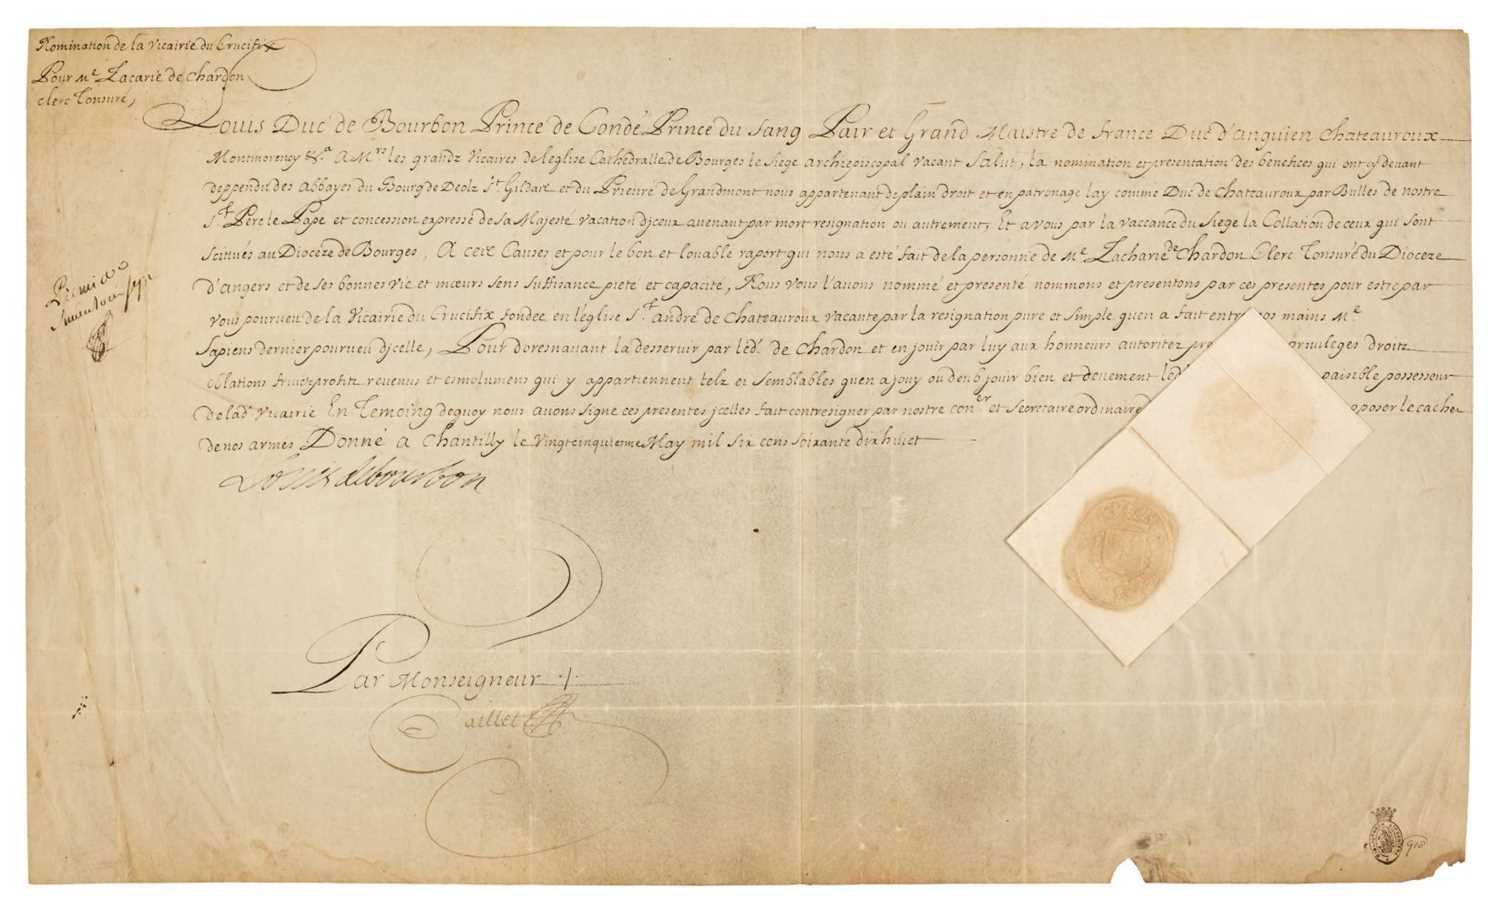 Nomination de la Vicairie du Crucifix
Pour Me. Zacarie de Chardon
Clerc Tonsuré,
Louis Duc de Bourbon Prince de Condé Prince du Sang Pair et Grand Maistre de France Duc d'anguien Chateauroux
Montmorency &a. A Mrs les grandz Vicaires de l'eglise Cathedralle de Bourges le Siege archiepiscopal vacant Salut, la nomination et presentation des benefices qui ont cy devant
deppendu des abbayes du Bourg de Deolz St. Gildare et du Prieuré de Grandmont nous appartenant de plain droit et en patronage lay comme Duc de Chateauroux par Bulles de nostre
St. Pere le Pape et concession expresse de sa Majesté vacation d'jceux avenant par mort resignation ou autrement, Et a vous par la vaccance du Siege la Collation de ceux qui sont
scitués au Dioceze de Bourges, A ces Causes et pour le bon et louable raport qui nous a esté fait de la personne de Me. Zacharie de Chardon Clerc Tonsuré du Dioceze
d'angers et de ses bonnes vie et mœurs sens suffisance pieté et capacité, Nous vous l'avons nommé et presenté nommons et presentons par ces presentes pour estre par
vous pourveu de la Vicairie du Crucifix fondée en l'eglise St. andré de Chateauroux vacante par la resignation pure et simple qu'en a fait entre nos mains Me.
Sapiens dernier pourveu d'jcelle, Pour doresnavant la desservir par led. de Chardon et en jouir par luy aux honneurs autoritez privileges droitz
oblations fruictz profitz revenus et esmolumens qui y appartiennent telz et semblables qu'en a jouy ou deub jouir bien et deuement paisible possesseur
de lad. Vicairie En Temoing de quoy nous avons signé ces presentes jcelles fait contresigner par nostre coner et Secretaire ordinaire oposer le cachet
de nos armes Donné a Chantilly le Vingtcinquieme May mil six cens soixante dix huict
Louis de bourbon
Par Monseigneur
Caillet
918